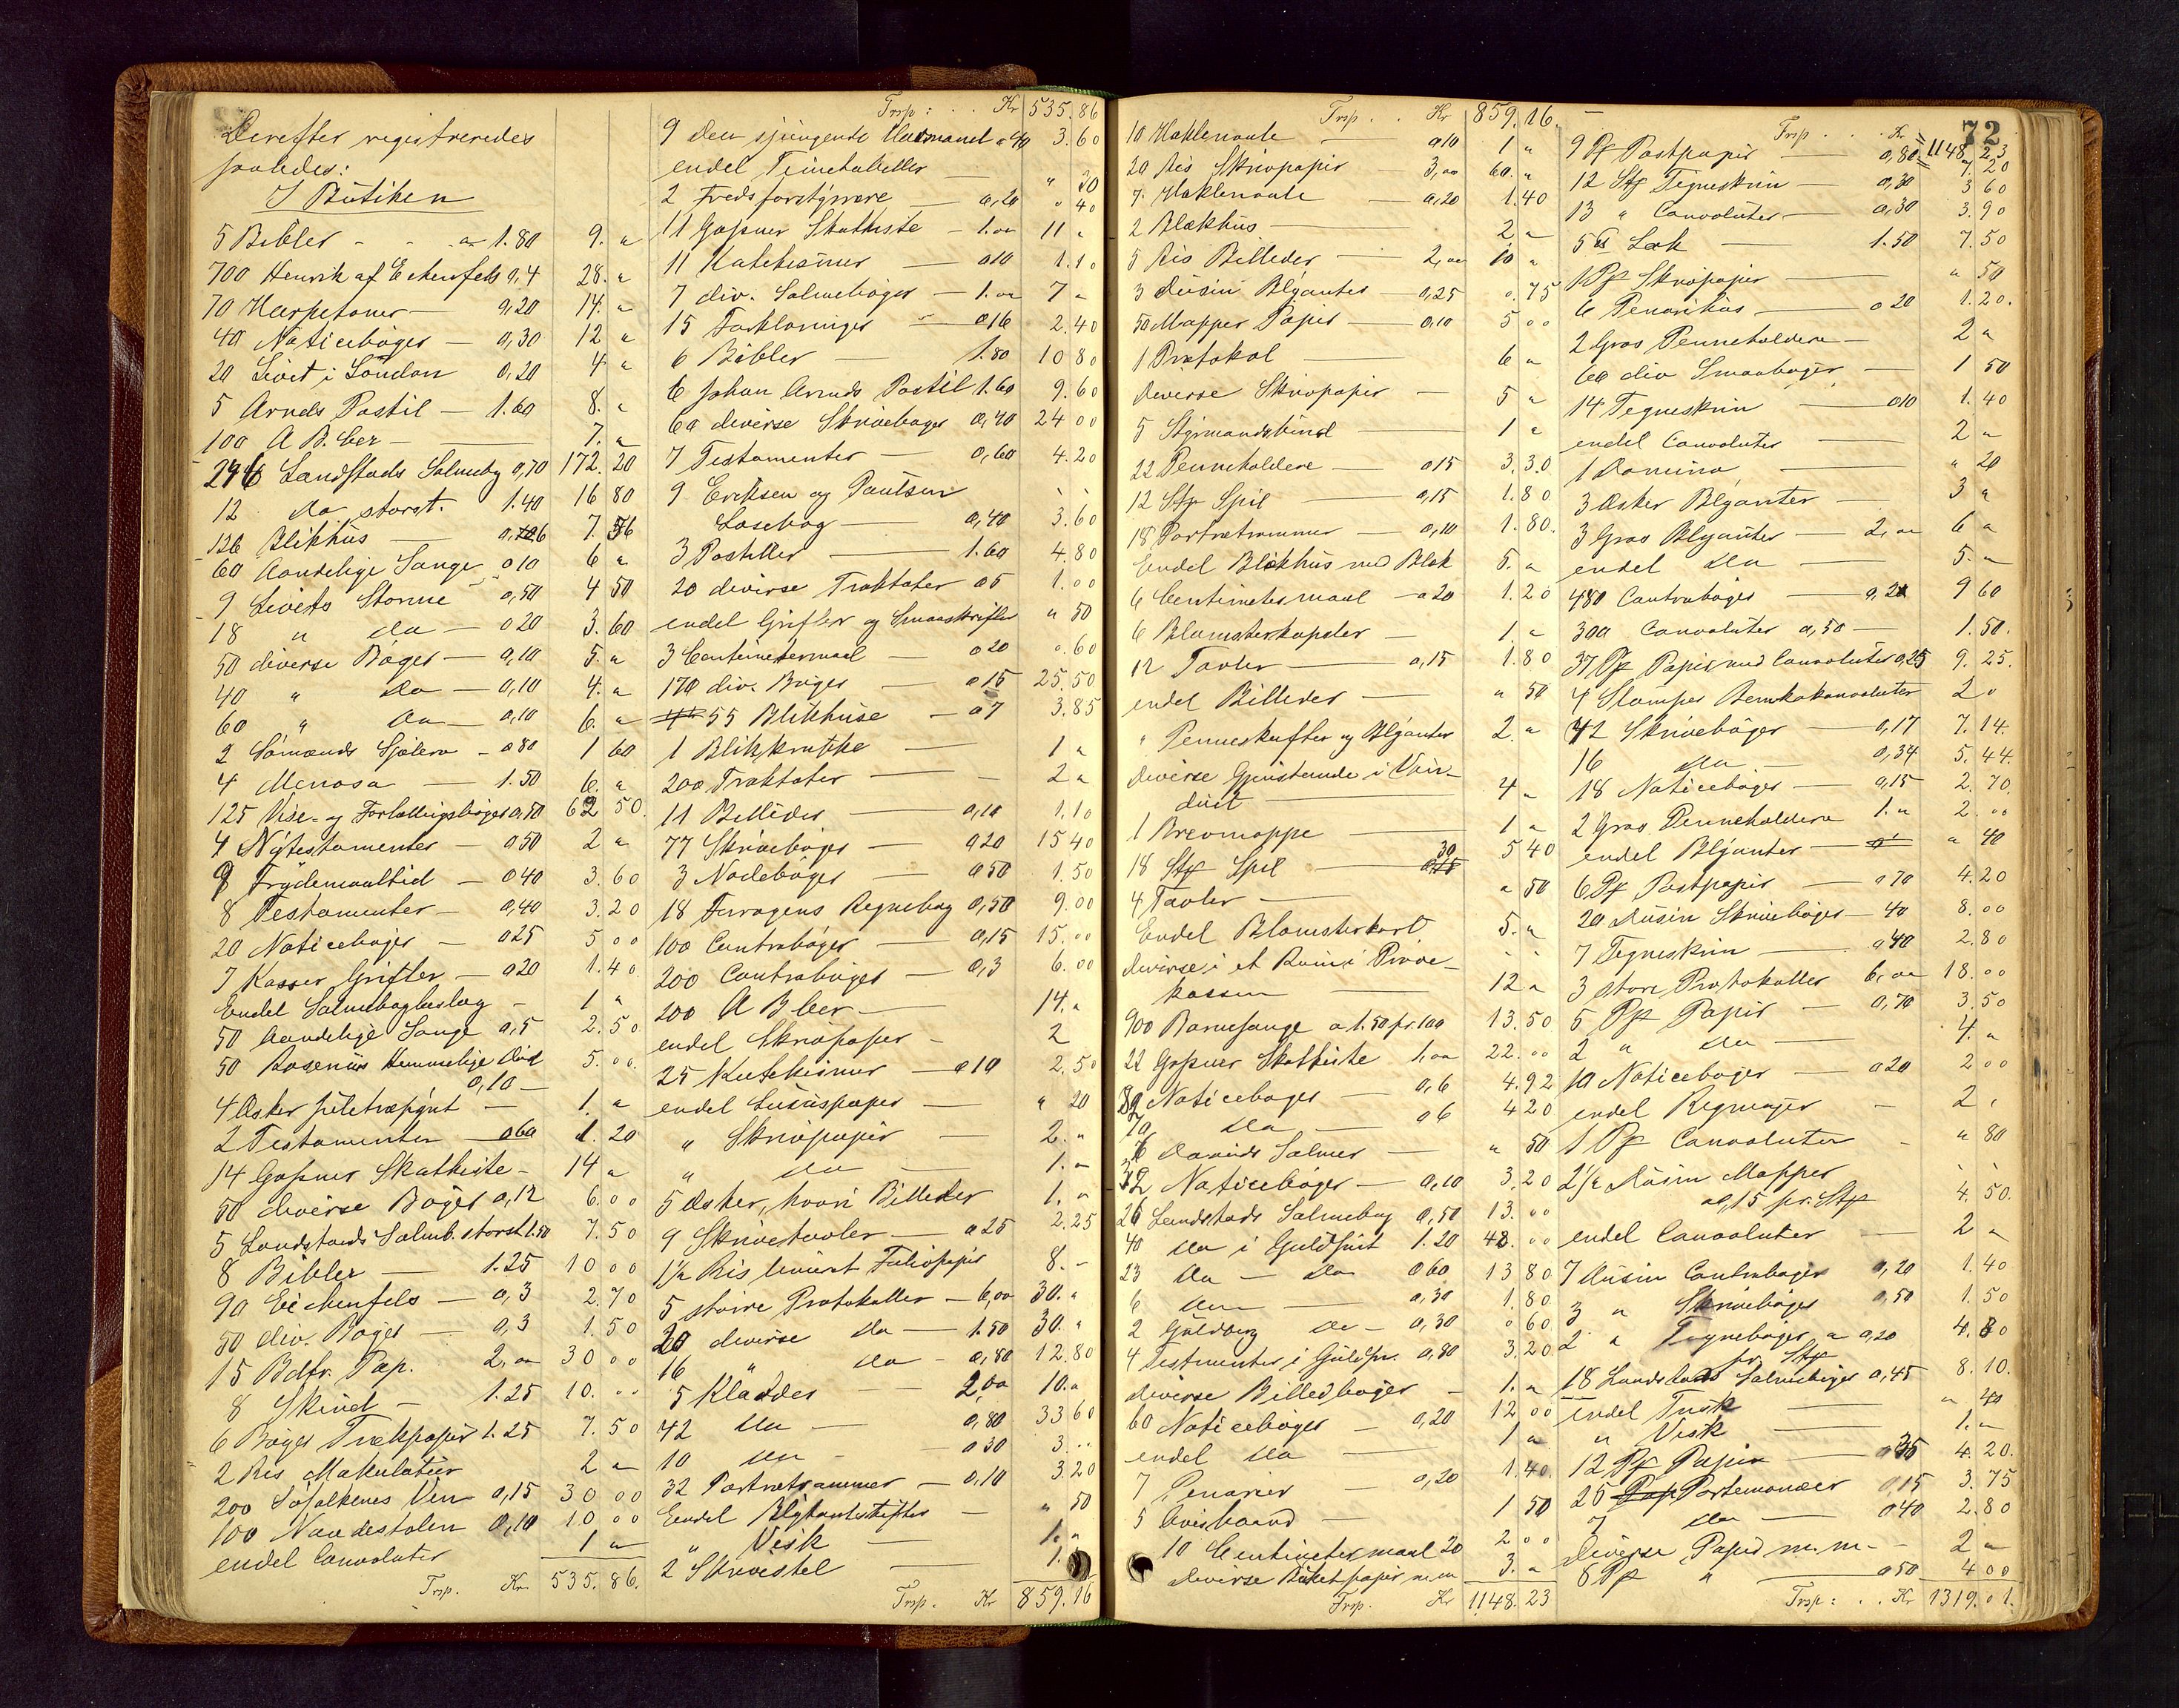 Derefter registreredes
saaledes:
I Butiken
5 Bibler - - a 1.80 9. "
700 Henrik af Eckenfels 0,4 28. "
70 Harpetoner — 0,20 14. "
40 Noticebøger — 0,30 12 "
20 Livet i London 0,20 4. "
5 Arnds Postil — 1.60 8. "
100 A.B.Cer — 7. "
246 Landstads Salmebg 0,70 172.20
12 do størst. 1.40 16 80
126 Blikhus — 0,06 7.56
60 Aandelige Sange 0 10 6 "
9 Livets Storme 0,50 4 50
18 " do — 0 20 3.60
50 diverse Bøger — 0,10 5. "
40 " do — 0,10 4. "
60 " do — 0,10 6. "
2 Sømænds Sjælero - 0 80 1 60
4 Menosa — 1.50 6. "
125 Vise- og Fortællingsbøger 0,50 62 50.
4 Nytestamenter — 0 50 2 "
9 Frydemaaltid — 0 40 3.60
8 Testamenter — 0,40 3.20
20 Noticebøger — 0 25 5 00
7 Kasser Grifler — 0 20 1.40
Endel Salmebogbeslag — 1 "
50 Aandelige Sange 0,5 2.50
50 Rosenius Hemmelige
0,10 — 5.00.
4 Æsker — 1. "
2 Testamenter — 0 60 1.20
14 Gosner Skatkiste — 14 "
50 diverse Bøger 0,12 6.00
5 Landstads Salmb. størst 1.50 7.50
8 Bibler — 1.25 10 00
90 Eickenfels — 0,3 2.70
50 div. Bøger — 0,3 1.50
15 Bdtr. Pap. 2,00 30 00
8 Skind — 1.25 10.00
6 Bøger Trækpapir 1.25 7.50
2 Ris Makulatur 2 "
200 Søfolkenes Ven 0,15 30 00
100 Naadestolen 0,10 10 00
endel Convoluter 1 "
Trsp. Kr. 535.86.
Trsp: . . Kr 535.86
9 Den sjungende Husmand a 40 3.60
endel Timetabeller — " 30
2 Fredsforstyrrere — 0,20 " 40
11 Gosner Skatkiste — 1.00 11 "
11 Katekismer — 0 10 1.10
7 div. Salmebøger — 1.00 7 "
15 Forklaringer — 0 16 2.40
6 Bibler — 1.80 10 80
6 Johan Arnds Postil 1.60 9.60
60 diverse Skrivebøger 0,40 24 00
7 Testamenter — 0,60 4.20
9 Eriksen og Paulsen
Læsebog — 0,40 3.60
3 Postiller — 1.60 4.80
20 diverse Traktater 0 5 1.00
endel Grifler og Smaaskrifter " 50
3 Centimetermaal — 0 20 0.60
170 div. Bøger — 0 15 25.50
55 Blikhuse — 0 7 3.85
1 Blikkrukke — 1 "
200 Traktater — 2 "
11 Billeder — 0,10 1,10
77 Skrivebøger — 0 20 15 40
3 Nodebøger — 0 50 1.50
18 Regnebog 0,50 9.00
100 Contrabøger — 0,15 15.00
200 Contrabøger — 0,3 6.00
200 A B Cer — 14. "
endel Skrivpapir — 2
25 Katekismer — 0 10 2.50
endel Luxuspapir — " 20
" Skrivpapir — 2. "
" do — 1. "
5 Æsker, hvori Billeder 1. "
9 Skrivetavler — 0 25 2.25
1½ Ris liniert Foliopapir 8. -
5 større Protokoller — 6,00 30. "
20 diverse do — 1.50 30. "
16 " do - 0,80 12.80
5 Kladder — 2,00 10. "
42 do — 0,80 33 60
10 do — 0 30 3..
32 Portrætrammer — 0,10 3.20
Endel Blyantstifter — " 50
" Visk — 1. "
2 Skrivestel — 1.
Trsp. Kr 859.16
Trsp . . Kr 859.16.
10 Heklenaale — 0 10 1 "
20 Ris Skrivpapir — 3,00 60. "
7. Heklenaale — 0,20 1.40
2 Blækhus — 2 "
5 Ris Billeder — 2,00 10 "
3 Dusin Blyanter — 0,25 0.75
50 Mapper Papir — 0,10 5 00
1 Protokol — 6 "
Diverse Skrivpapir — 5 "
5 Styrmandsbind — 1 "
22 Penneholdere — 0 15 3.30
12 Stk Spil — 0,15 1.80
18 Portrætrammer — 0,10 1.80.
Endel Blækhus med Blæk 5. "
6 Centimetermaal — 0 20 1.20
6 Blomsterkapsler — 1. "
12 Tavler — 0,15 1.80
endel Billeder — " 50
" Penneskafter og Blyanter 2. "
Diverse Gjenstande i Vin-
duet — 4 "
1 Brevmappe — 1 "
18 Stk Spil — 30 5 40
4 Tavler — " 50
Endel Blomsterkort 5. "
diverse i et Rum i Prøve-
kassen — 12 "
900 Barnesange a 1.50 pr. 100 13.50
22 Gosner Skatkiste 1,00 22.00
82 Noticebøger — 0,6 4.92
70 do — 0 6 4 20
Davids Salmer — " 50
32 Noticebøger — 0,10 3.20
26 Landstads Salmebog 0,50 13.00
40 do i Guldsnit 1.20 48.00
23 do — do 0 60 13 80
6 do — 0,30 1.80
2 Guldberg do — 0,30 0 60
4 Testmenter i Guldsn. 0,80 3.20
diverse Billedbøger — 1. "
60 Noticebøger — 0,20 12 00
endel do — 1 "
7 Penarier — 0,20 1.40.
5 — 1 50
10 Centimetermaal 20 2 00
diverse Buketpapir m.m 3. "
Trsp. Kr 1148.23
72
Trsp . . . Kr 1148.23
9 Pk Postpapir — 0,80 7.20
12 Stk Tegneskrin — 0,30 3 60
13 " Convoluter — 0,30 3.90
5 Lak — 1.50 7.50
1 Pk Skrivpapir — " 50
6 Penarihus — 0 20 1.20.
2 Gros Penneholdere — 2 "
60 div Smaabøger — 1 50
14 Tegneskrin — 0 10 1.40
endel Convoluter — 2 "
1 Domino — " 20
3 Æsker Blyanter — 3 "
3 Gros Blyanter — 2,00 6 "
endel do — 5. "
480 Contrabøger — 0,2 9 60
300 Convoluter 0,50 — 1.50.
37 Pk Papir med Convoluter 0,25 9.25.
4 2 "
42 Skrivebøger — 0,17 7.14.
16 do — 0,34 5.44.
18 Noticebøger — 0,15 2.70.
2 Gros Penneholdere 1. " 2.00
endel Blyanter — " 40
6 Pk Postpapir — 0 70 4.20
20 Dusin Skrivebøger — 40 8.00
7 Tegneskrin — 0 40 2.80
3 store Protokoller 6,00 18.00
5 Pk Papir — 0,70 3.50
2 " do — 4. "
10 Noticebøger — 0 20 2 00
endel — 2.
1 Pk Convoluter - " 80
2½ Dusin Mapper
a 0,15 pr. Stk 4.50.
endel Convoluter — 2 "
7 Dusin Contrabøger 0,20 1.40
3 " Skrivebøger 0,50 1.50
2 " Tegnebøger a 0,20
pr. Stk 4.80
18 Landstads Salmebøger 0,45 8.10.
endel Tusk — " 40
" Visk — 1. "
12 Pk Papir — 0 35 4.20.
25 Portemonæer 0,15 3.75
7 do 0 40 2.80
Diverse Papir m.m. — 2 "
8 Pk " — 0 50 4 00
Trsp: . . Kr 1319.01.